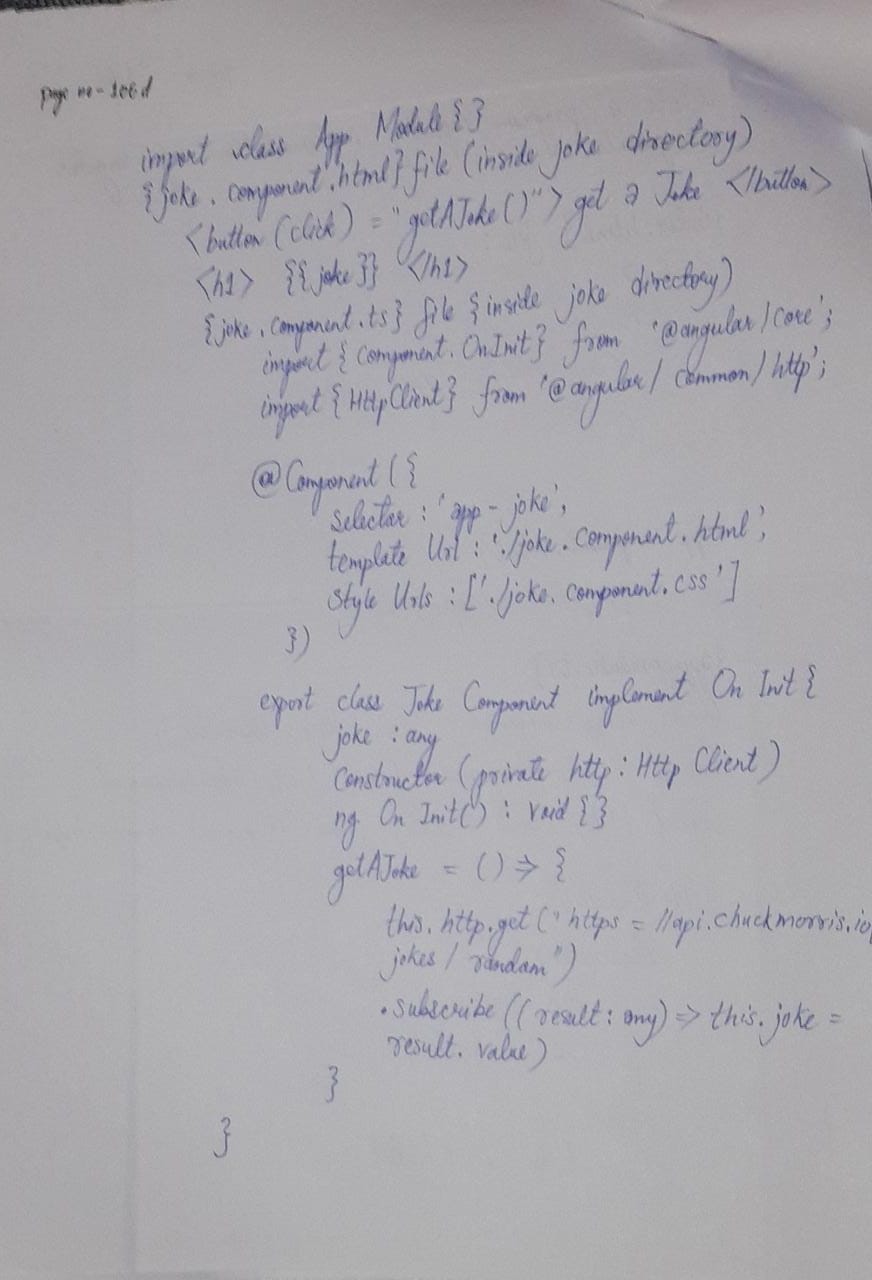 page no - 106 d
import class App Module {}
{joke . component .html} file (inside joke directory)
<button (click) = "getAJoke ()"> get a Joke </button>
<h1> {{joke}} </h1>
{joke . component . ts} file {inside joke directory)
import { Component. OnInit} from '@angular/core';
import { HttpClient} from '@angular / common / http';
@Component ({
Selector : 'app - joke',
template Url : './joke . component . html',
Style Urls : ['./joke. component. css ']
})
export class Joke Component implement On Init {
joke : any
Constructor (private http : Http Client )
ng On Init() : void {}
getAJoke = () => {
this. http.get (" https = //api. chuckmorris.io
jokes / random")
. subscribe (( result : any) => this. joke =
result. value )
}
}